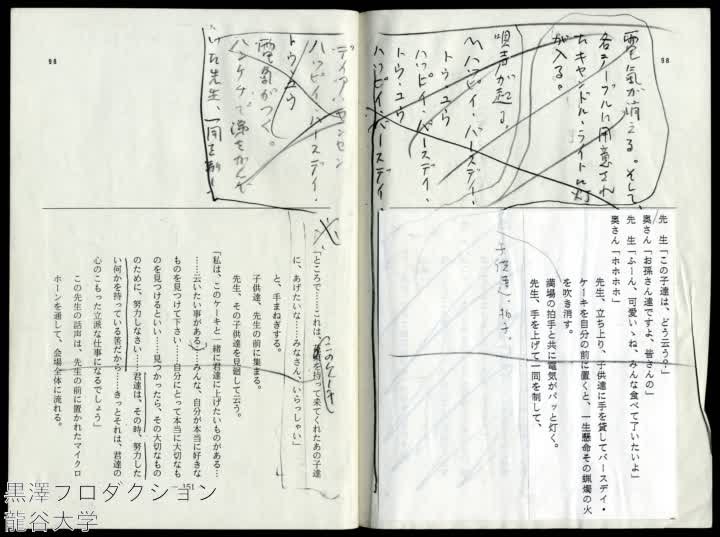 98
電気が消える。そして、
各テーブルに用意され
たキャンドル・ライトに灯
が入る。
唄声が起る。
〽ハッピイ・バースデイ・
トウ・ユウ
ハッピイ・バースデイ・
トウ・ユウ
ハッピイ・バースデイ・
先　生「この子達は、どう云う？」
奥さん「お孫さん達ですよ、皆さんの」
先　生「ふーん、可愛いゝね、みんな食べて了いたいよ」
奥さん「ホホホホ」
先生、立ち上り、子供達に手を貸してバースデイ・
ケーキを自分の前に置くと、一生懸命その蝋燭の火
を吹き消す。
満場の拍手と共に電気がパッと灯く。
先生、手を上げて一同を制して、
子供達、拍手。
98
ディア・センセン
ハッピイ・バースデイ・
トウ・ユウ
電気がつく。
ハンケチで涙をかんで
いた先生、一同を制し、
「ところで……これは、
を持って来てくれたあの子達
このケーキ
に、あげたいな……みなさん、いらっしゃい」
と、手まねぎする。
子供達、先生の前に集まる。
先生、その子供達を見廻して云う。
「私は、このケーキと一緒に君達に上げたいものがある…
……云いたい事がある……みんな、自分が本当に好きな
ものを見つけて下さい……自分にとって本当に大切なも
のを見つけるといい……見つかったら、その大切なもの
のために、努力しなさい……君達は、その時、努力した
い何かを持っている筈だから……きっとそれは、君達の
心のこもった立派な仕事になるでしょう」
この先生の話声は、先生の前に置かれたマイクロ
ホーンを通して、会場全体に流れる。
151
黒澤プロダクション
龍谷大学